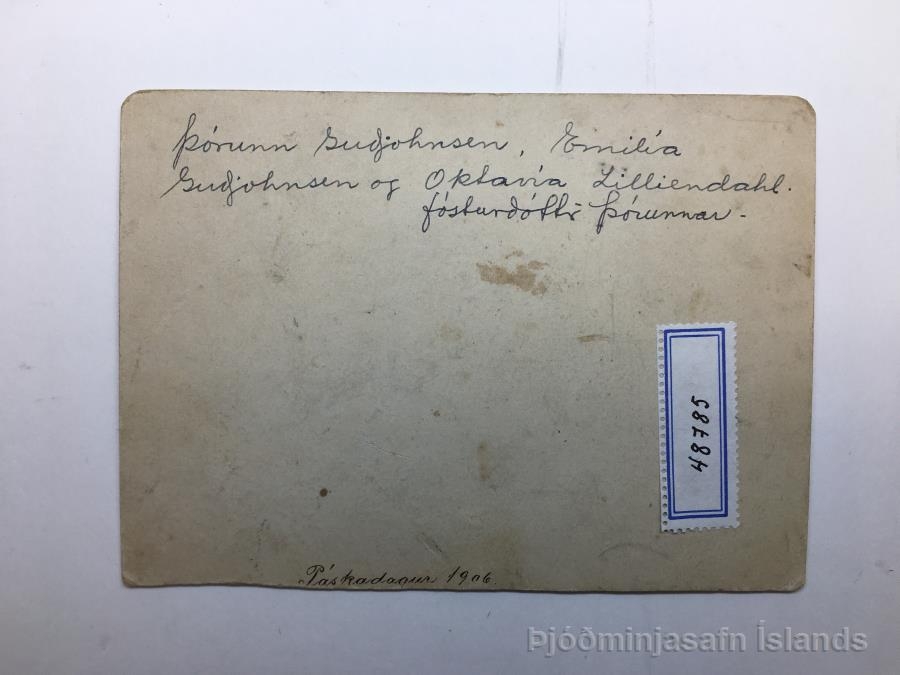 Þórunn Guðjohnsen, Emilía
Guðjohnsen og Oktavía Lilliendahl.
fósturdóttir Þórunnar -
48785
Páskadagur 1906.
Þjóðminjasafn Íslands